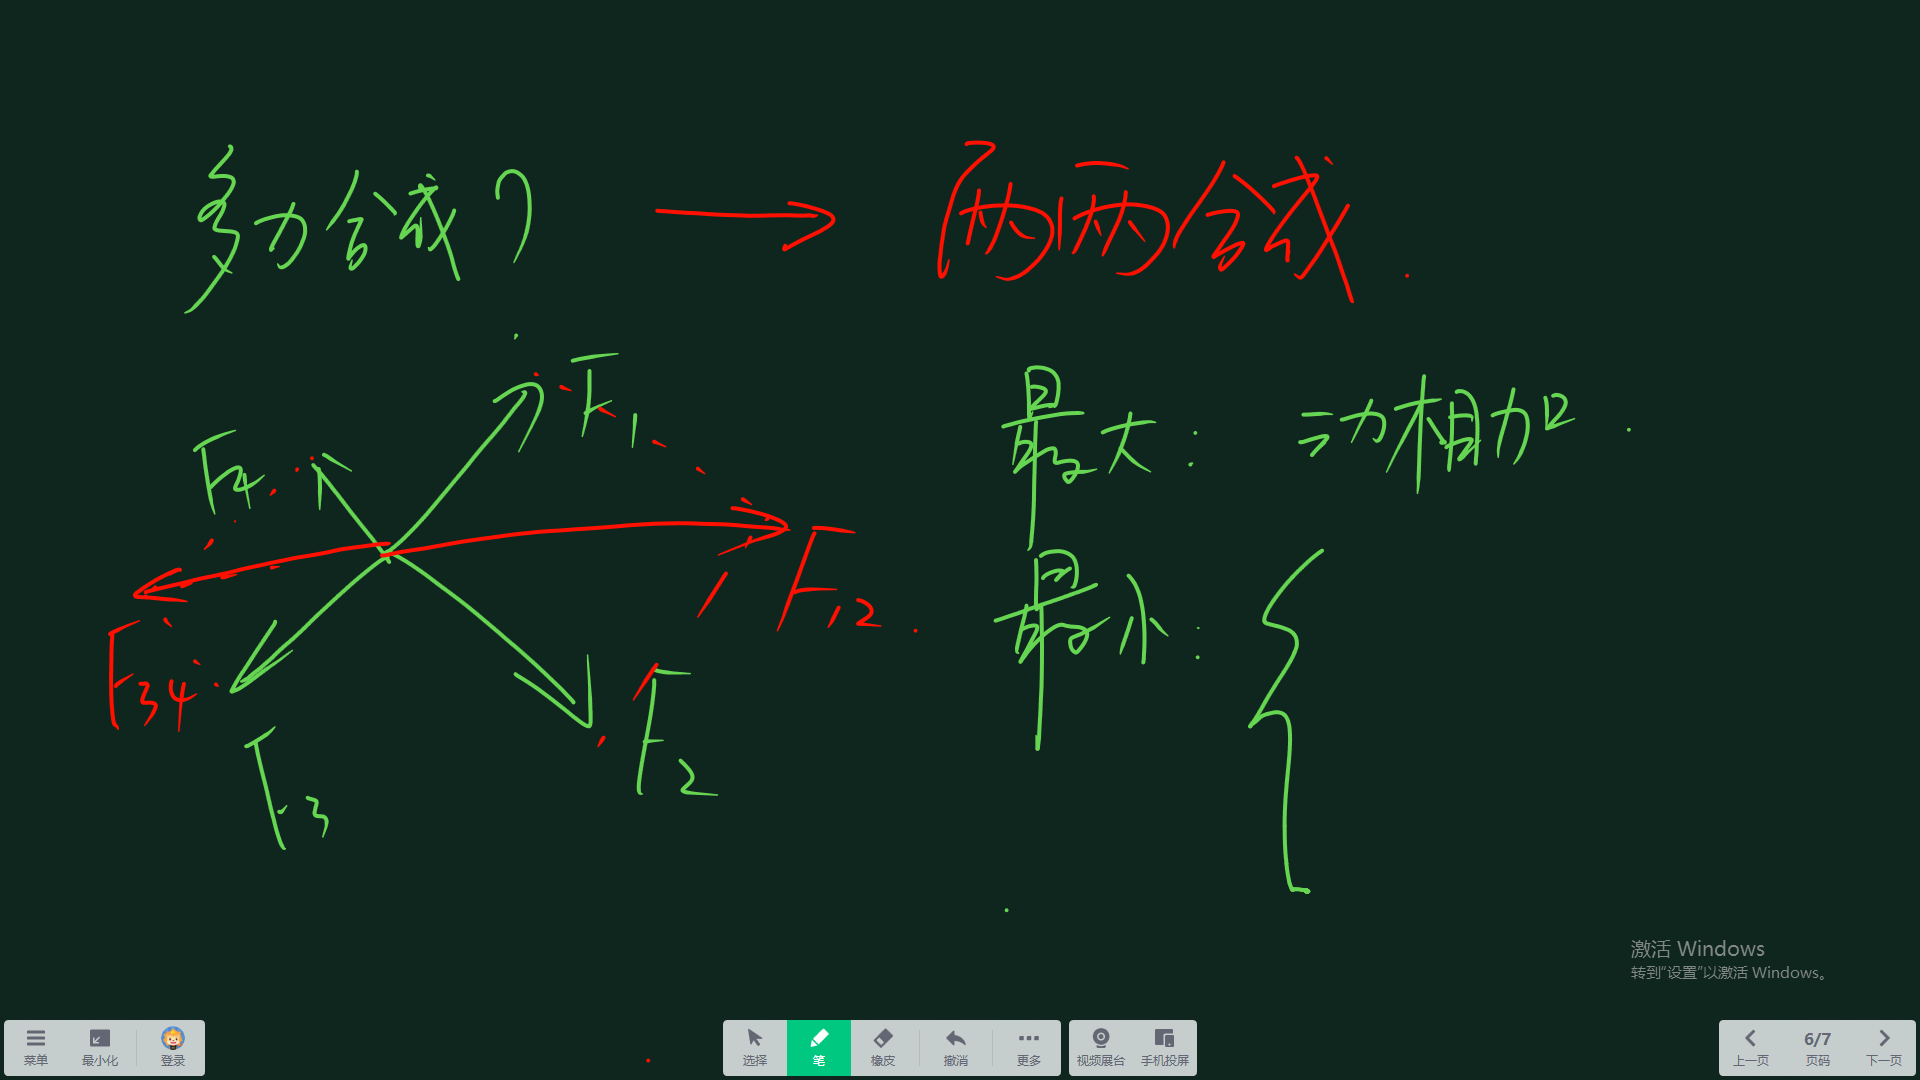 多力合成？ → 两两合成.
F₁
F₄
最大：动相加.
F₁₂
最小：{
F₃₄
F₂
F₃
激活 Windows
转到“设置”以激活 Windows。
菜单 最小化 登录 选择 笔 橡皮 撤消 更多 视频展台 手机投屏 上一页 6/7 页码 下一页